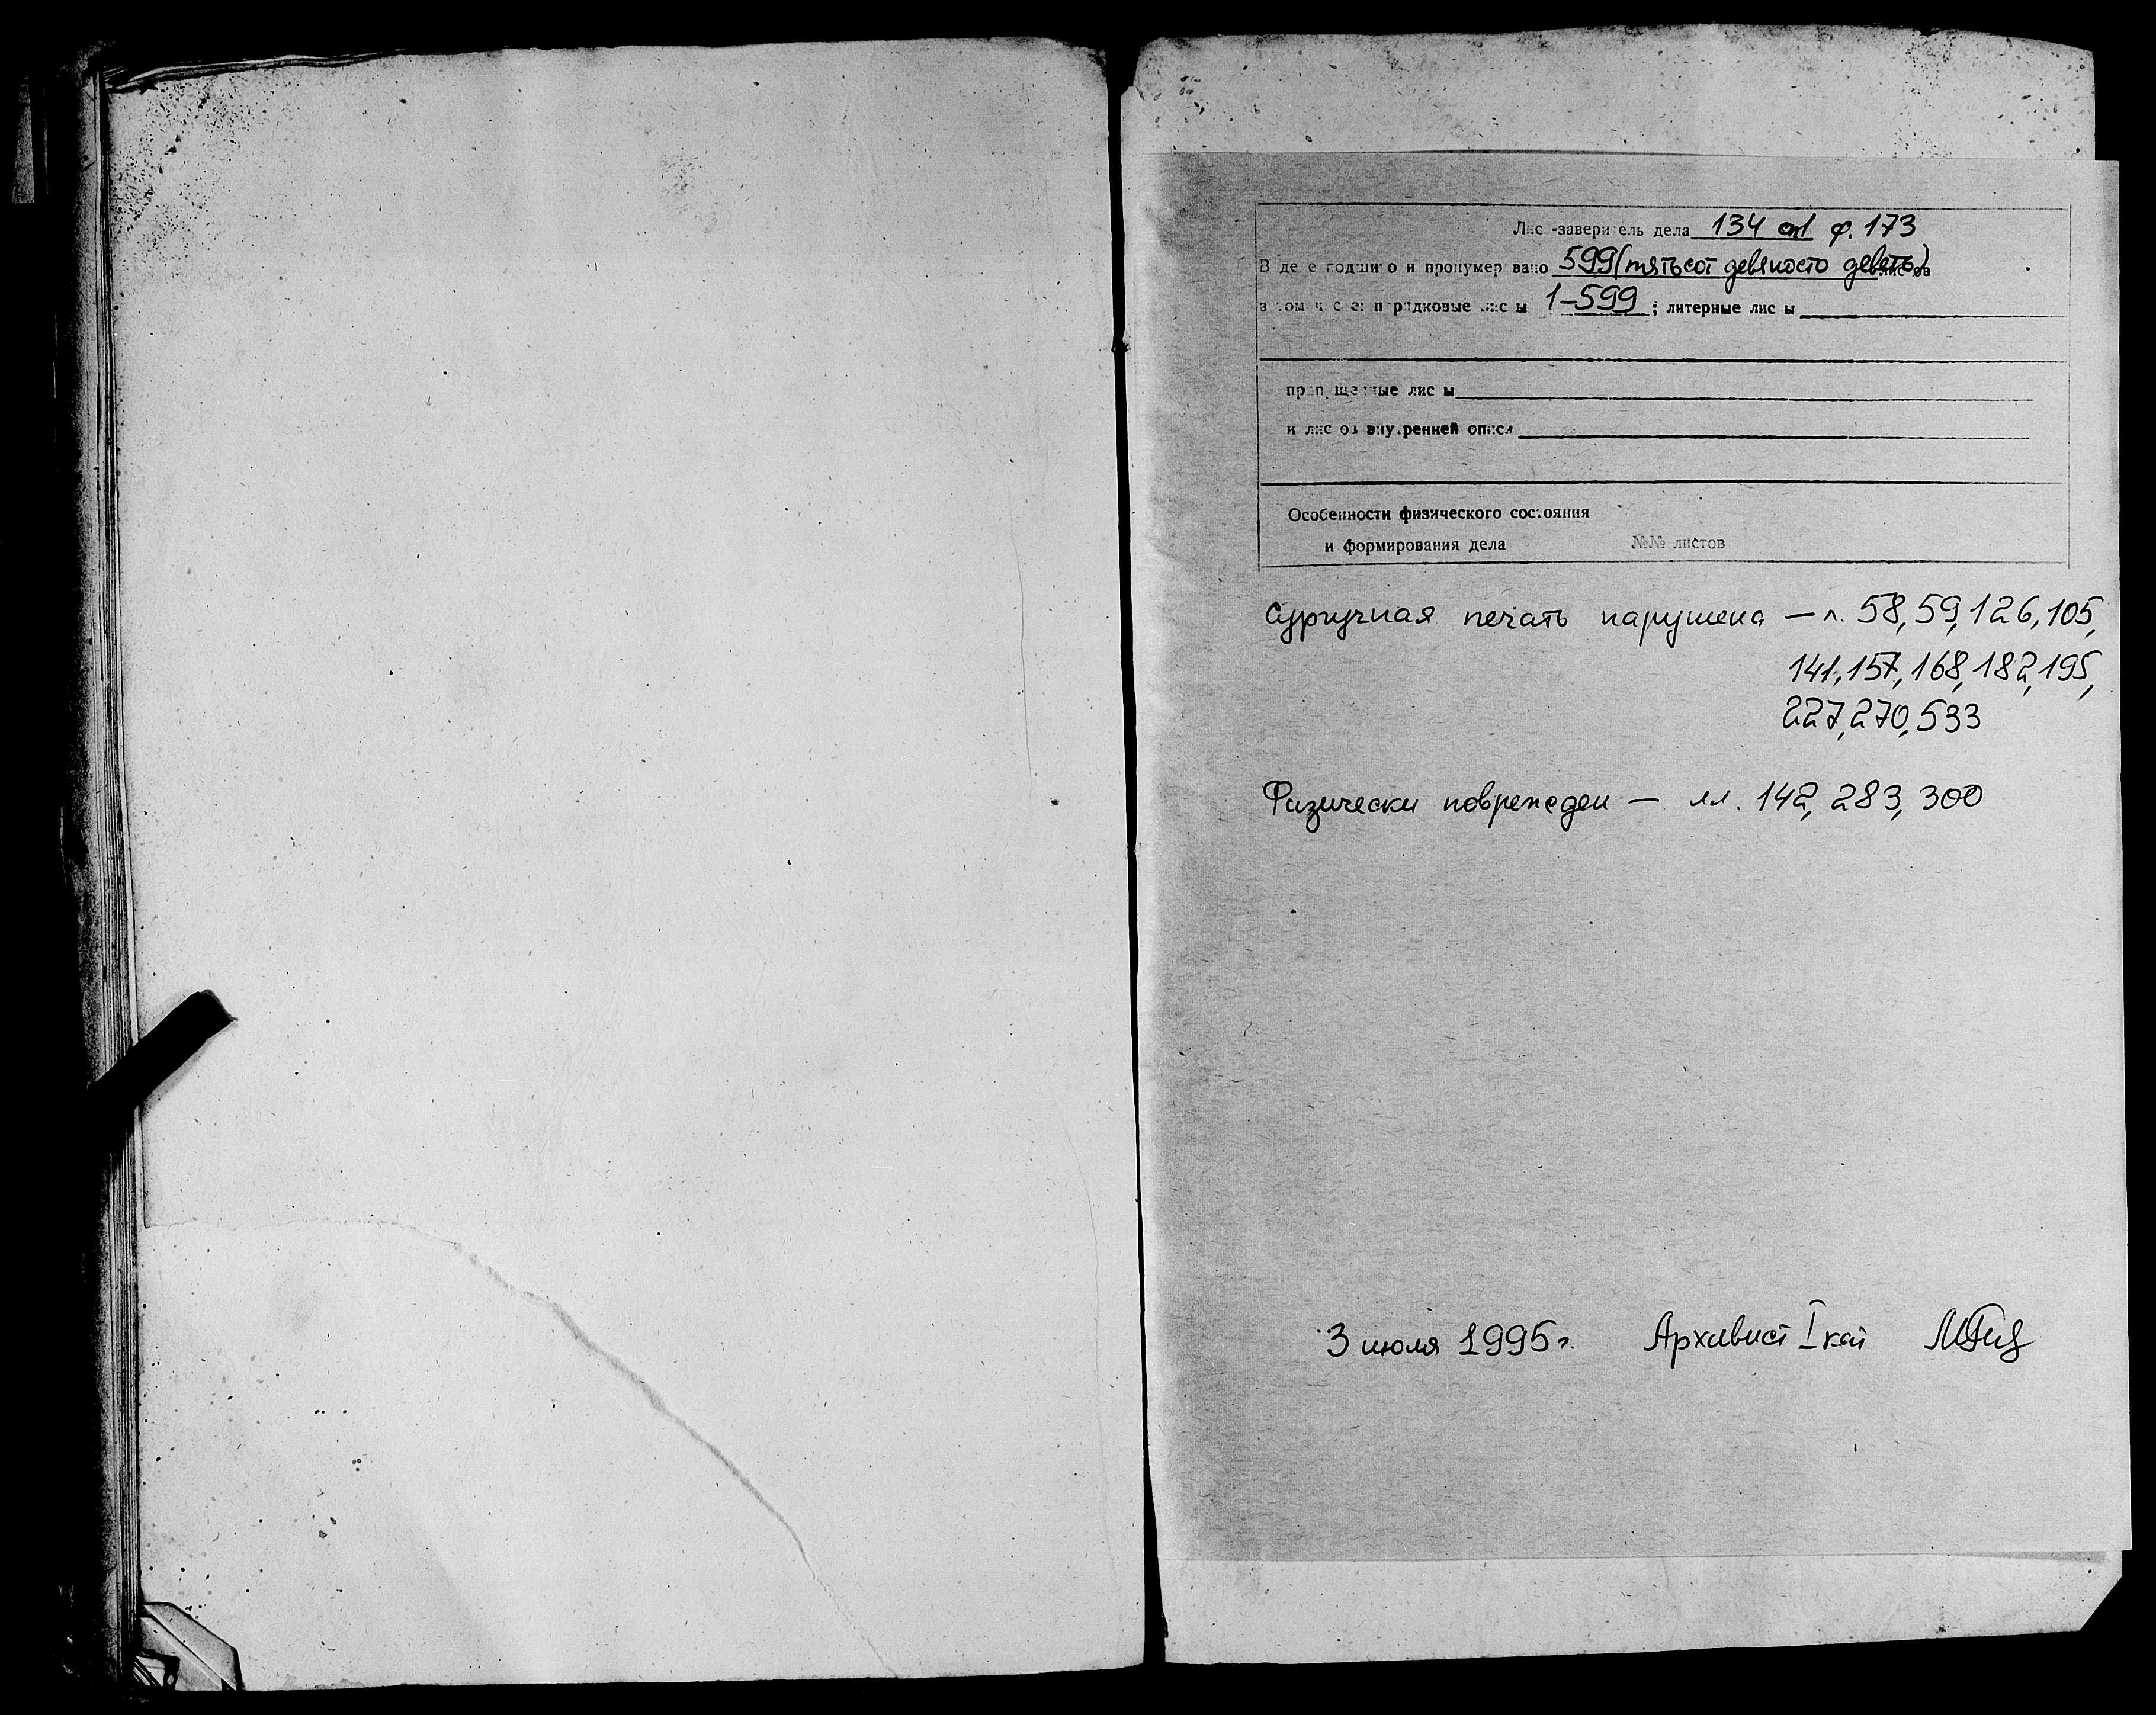 Лист-заверитель дела 134 оп1 ф. 173
В деле подшито и пронумеровано 599 (пятьсот девяносто девять) листов
в том числе: порядковые листы 1-599 ; литерные листы
пропущенные листы
и листов внутренней описи
Особенности физического состояния
и формирования дела №№ листов
Сургучная печать нарушена — л. 58, 59, 126, 105,
141, 157, 168, 182, 195,
227, 270, 533
Физически поврежден — лл. 142, 283, 300
3 июля 1995 г. Архивист I кат